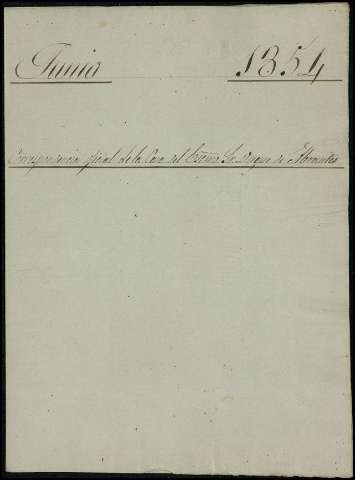 Junio 1854
Correspondencia oficial de la Casa del Excmo. Sr. Duque de Abrantes